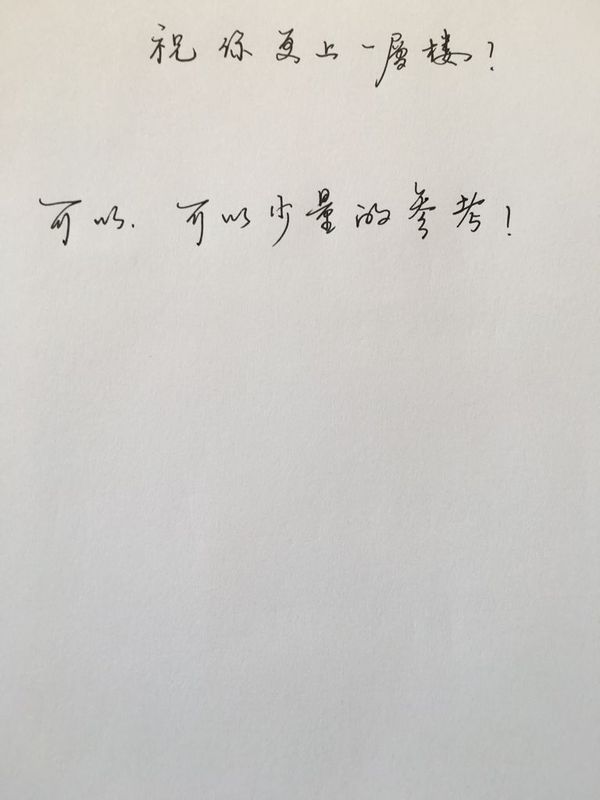 祝你更上一层楼!
可以.可以少量的参考!